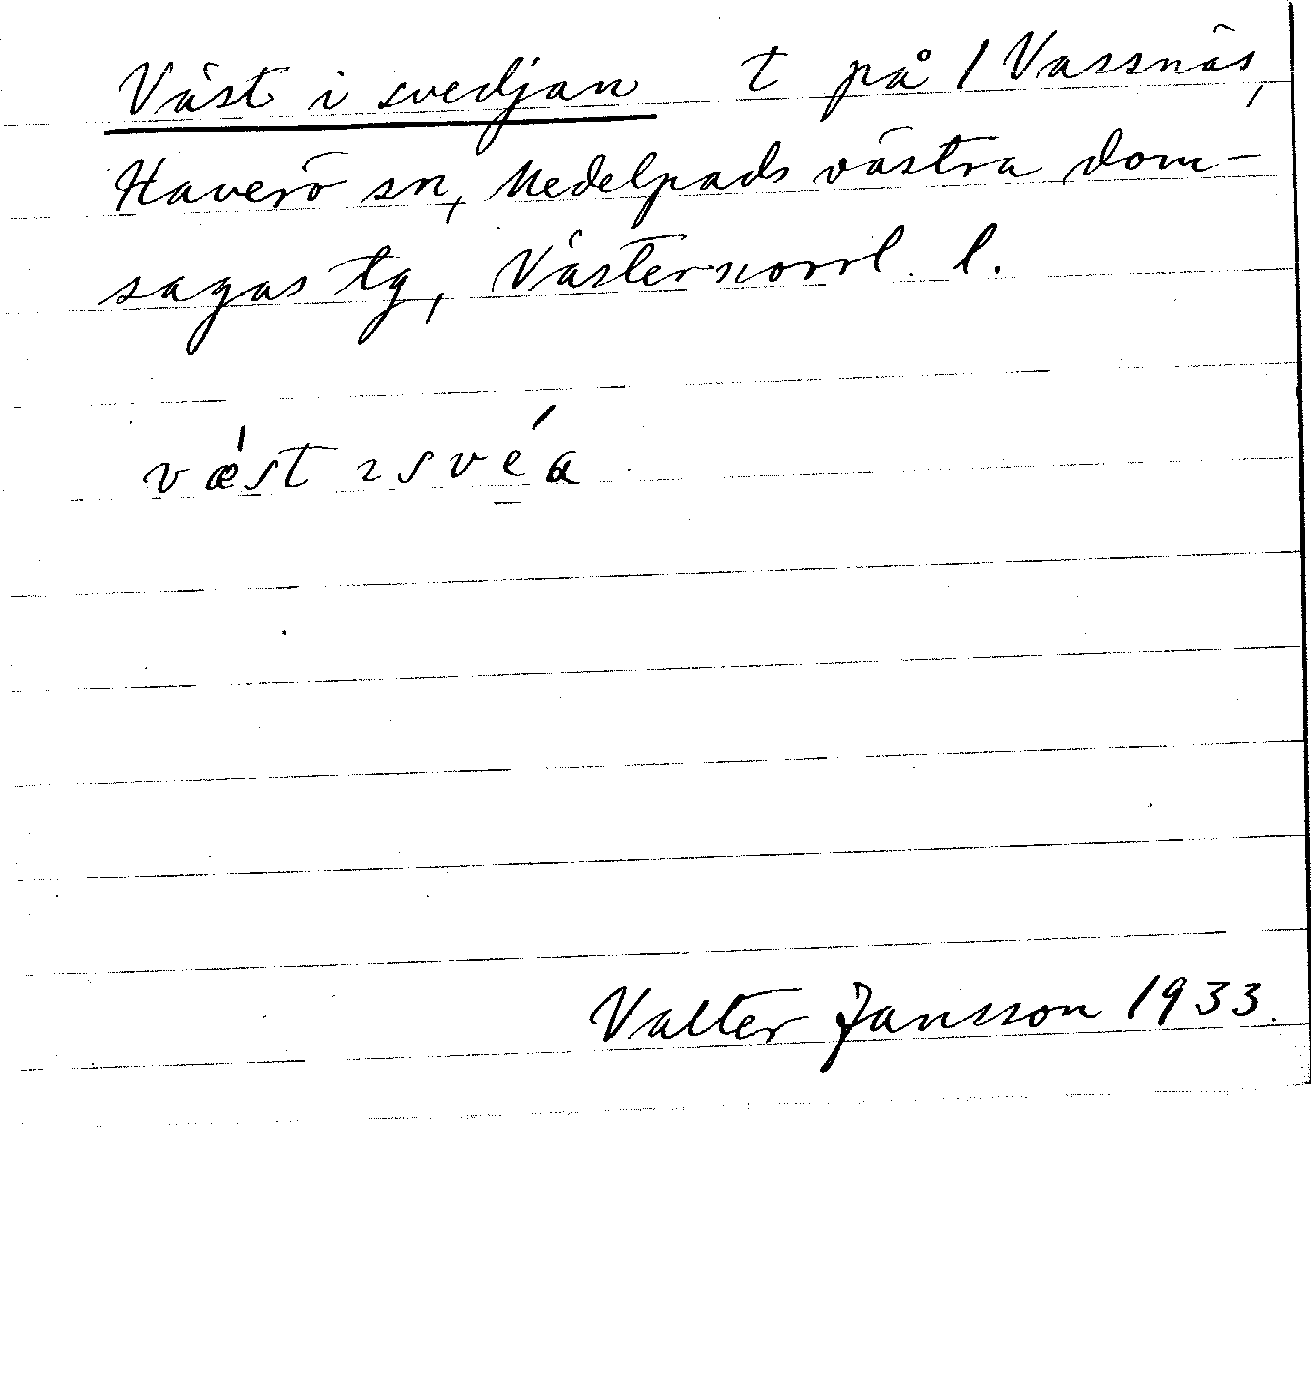 Väst i svedjan t på 1 Vassnäs,
Haverö sn, Medelpads västra dom-
sagas tg, Västernorrl. l.
væ̍st ɿ svéa
Valter Jansson 1933.